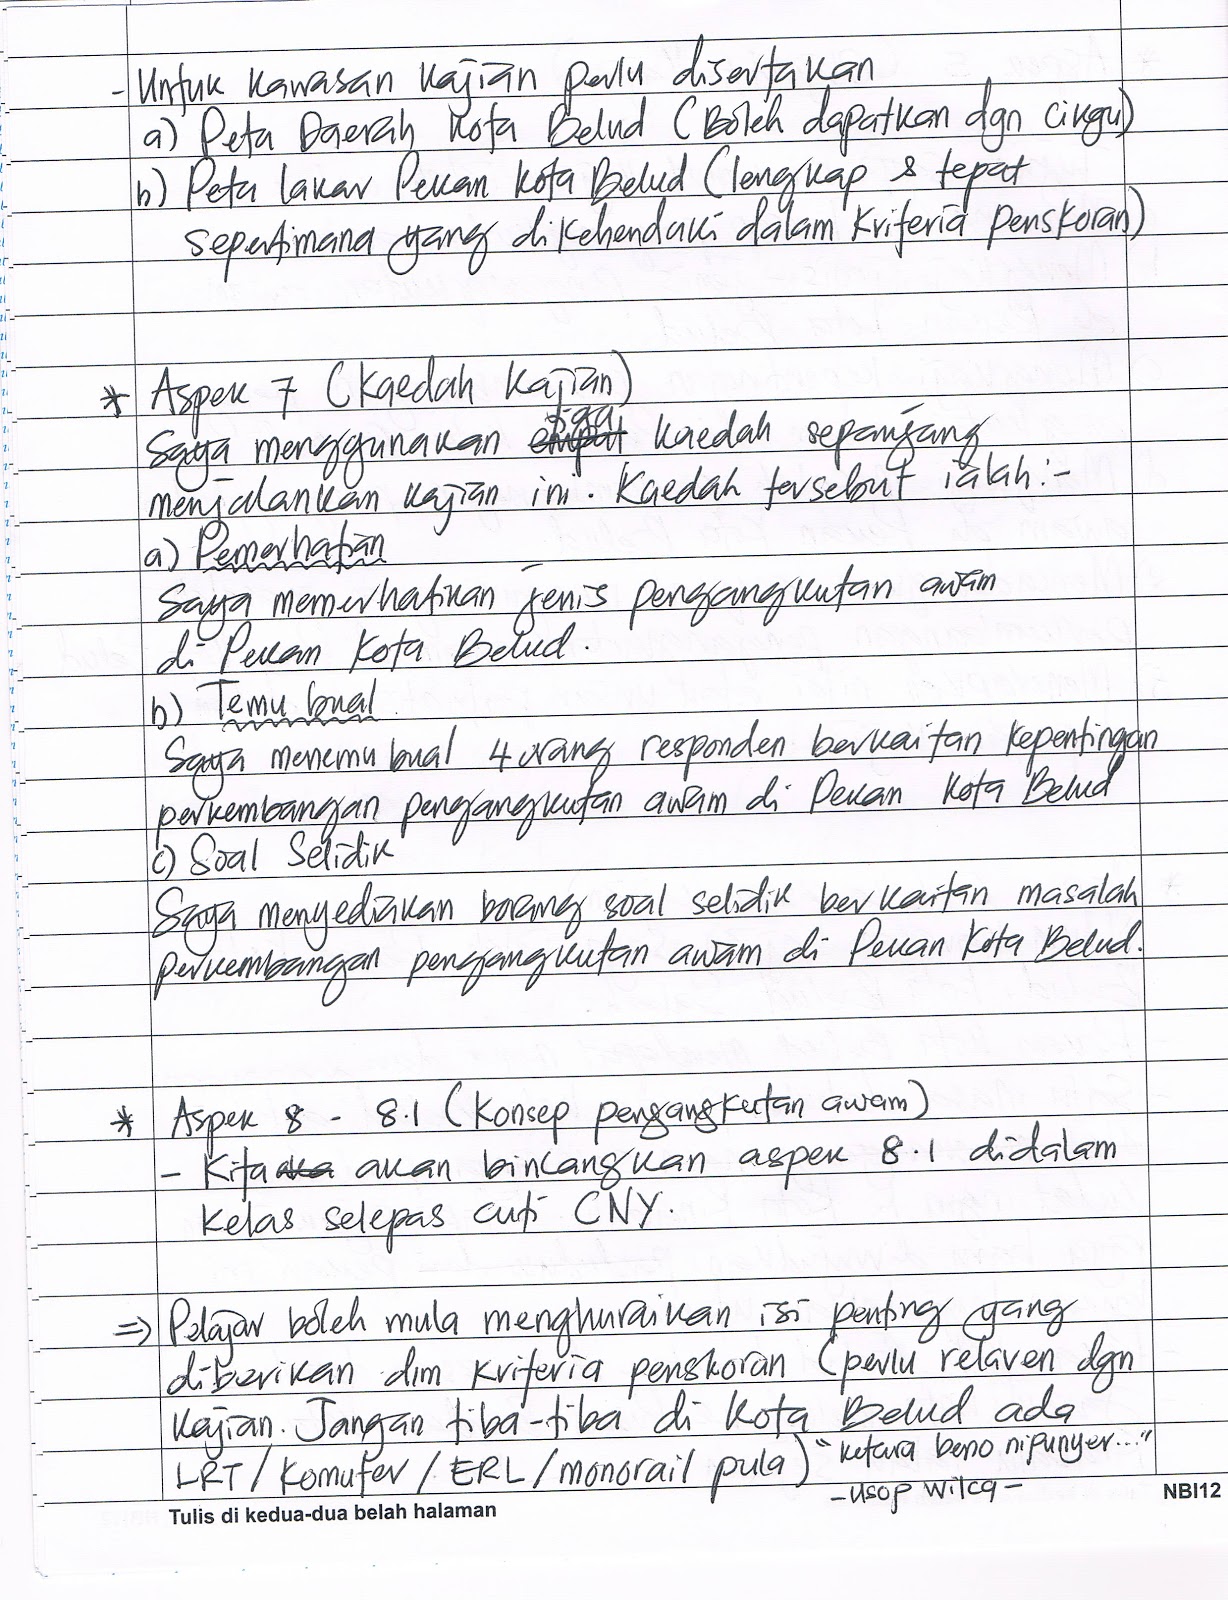 - Untuk kawasan kajian perlu disertakan
a) Peta Daerah Kota Belud (Boleh dapatkan dgn cikgu)
b) Peta lakar Pekan Kota Belud (lengkap & tepat
sepertimana yang dikehendaki dalam Kriteria Penskoran)
* Aspek 7 (Kaedah Kajian)
tiga
Saya menggunakan empat kaedah sepanjang
menjalankan kajian ini. Kaedah tersebut ialah:-
a) Pemerhatian
Saya memerhatikan jenis pengangkutan awam
di Pekan Kota Belud.
b) Temu bual
Saya menemu bual 4 orang responden berkaitan kepentingan
perkembangan pengangkutan awam di Pekan Kota Belud
c) Soal Selidik
Saya menyediakan borang soal selidik berkaitan masalah
perkembangan pengangkutan awam di Pekan Kota Belud.
* Aspek 8 - 8.1 (Konsep pengangkutan awam)
- Kita akan bincangkan aspek 8.1 didalam
kelas selepas cuti CNY.
=> Pelajar boleh mula menghuraikan isi penting yang
diberikan dlm kriteria penskoran (perlu relaven dgn
kajian. Jangan tiba-tiba di Kota Belud ada
LRT/Komuter/ERL/monorail pula) "ketara beno nipunyer..."
- usop wilcq -
Tulis di kedua-dua belah halaman
NBI12